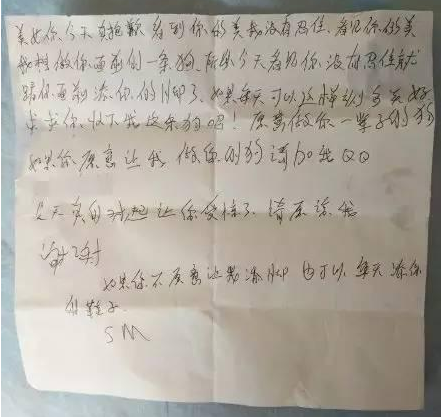 美女你今天真抱歉看到你的美我没有忍住.看见你的美
我想做你面前的一条狗.所以今天看见你没有忍住就
跪你面前舔你的脚了.如果每天可以这样
求求你收下我这条狗吧！愿意做你一辈子的狗
如果你愿意让我做你的狗请加我QQ
今天真的对不起让你受惊了请原谅我
谢谢
如果你不愿意让我舔脚也可以每天舔你
的鞋子.
SM